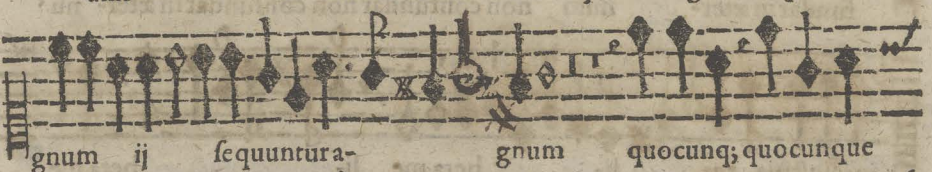 gnum ij ſequuntura- gnum quocunq; quocunque